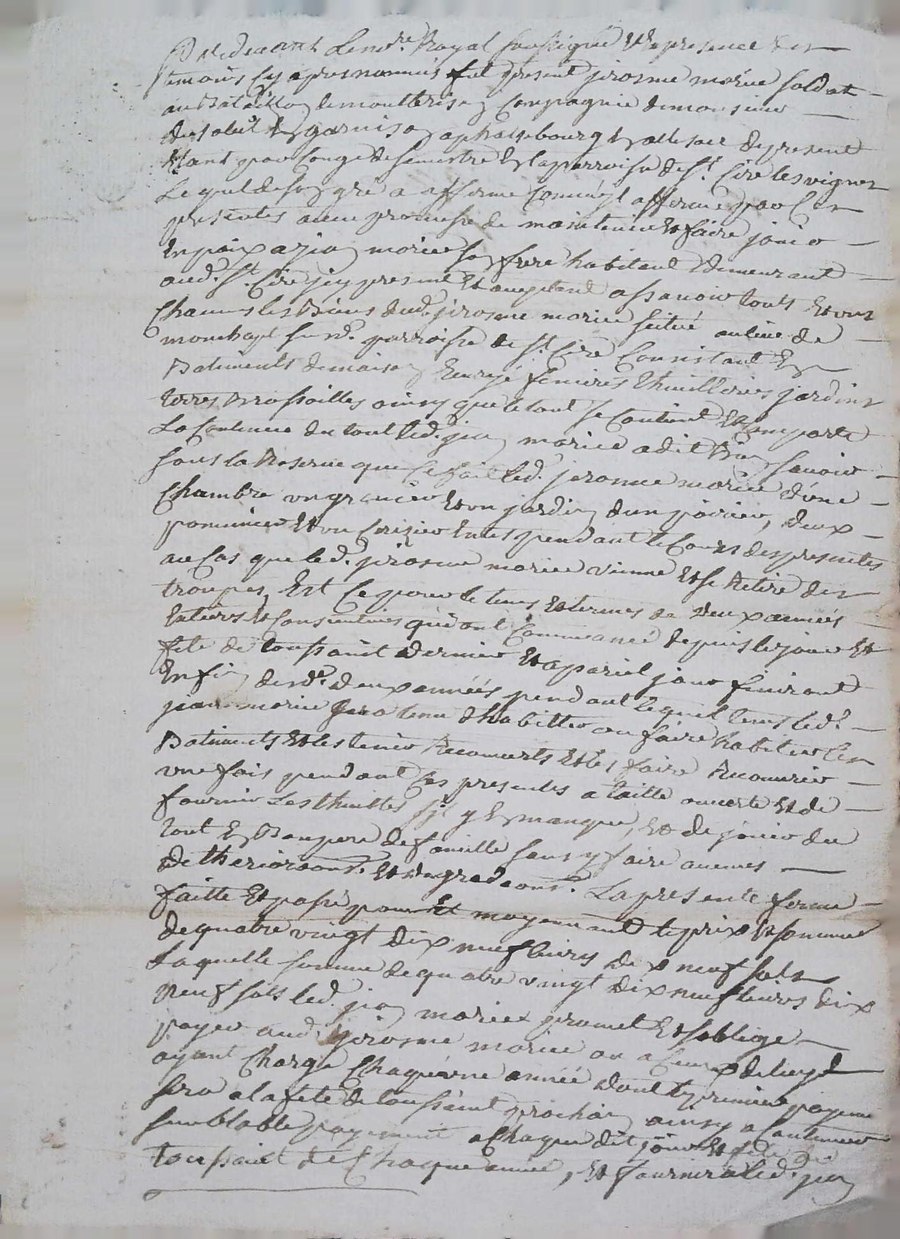 Pardevant Le no.re Royal soussigné Et En presence des
temoins cy apres nommés fut present jirosme morice soldat
au Bataillon de montbrison Compagnie de monsieur
En garnison a phalsebourg En alsace de present
Etant par Conge de semestre En La parroisse de St. Cire les vignes
Lequel de son gré a affermé Comme Il afferme par Ces
presentes avec promesse de maintenir Et faire jouir
En paix a jean morice son frere habitant Demeurant
aud. St. Cire jcy present Et aceptant assavoir touts Et uns
Chacuns les Biens dud. jirosme morice scitué au lieu de
parroisse de St. Cire Consistant En
Batiments de maison Ecurye fenières thuilleries jardins
terres Brossailles ainsy que le tout se Contient Et Comporte
La Contenue du tout led. jean morice a dit Bien sçavoir
sous la Reserve que Ce fait led. jerosme morice d'une
Chambre un grenier Et un jardin d'un poirier, deux
pommiers Et un Cerizier Enles pendant le Cours des presentes
au Cas que led. jirosme morice vienne Et se Retire des
troupes, Est Ce pour le tems Et termes de Deux années
Entiers Et Consecutives qui ont Commencé depuis le jour Et
fête de toussaint dernier Et a pariel jour finiront
En fin desd.es deux années pendant lequel tems led.
jean morice sera tenu d'habitter ou faire habiter les
Batiments Et les tenir Recouverts Et les faire Recouvrir
une fois pendant Ces presentes a taille ouverte Et de
fournir Les thuilles s'il y En manque, Et de jouir du
tout En Bon pere de famille sans y faire aucunes
Detherioraons. Et degradaons. La presente ferme
faitte Et passé pour Et moyennant le prix Et somme
de quatre vingt dix neuf livres dix neuf sols
Laquelle somme de quatre vingt dix neuf livres dix
neuf sols led. jean morice promet Et s'oblige
payer aud. jirosme morice ou a Ceux de luy
ayant Charge Chaqu'une année dont le premier payement
sera a la fête de toussaint prochain ainsy a Continuer
semblable payement a Chaque dit jour Et fête de
toussaint de Chaque année, Et fournira led. jean